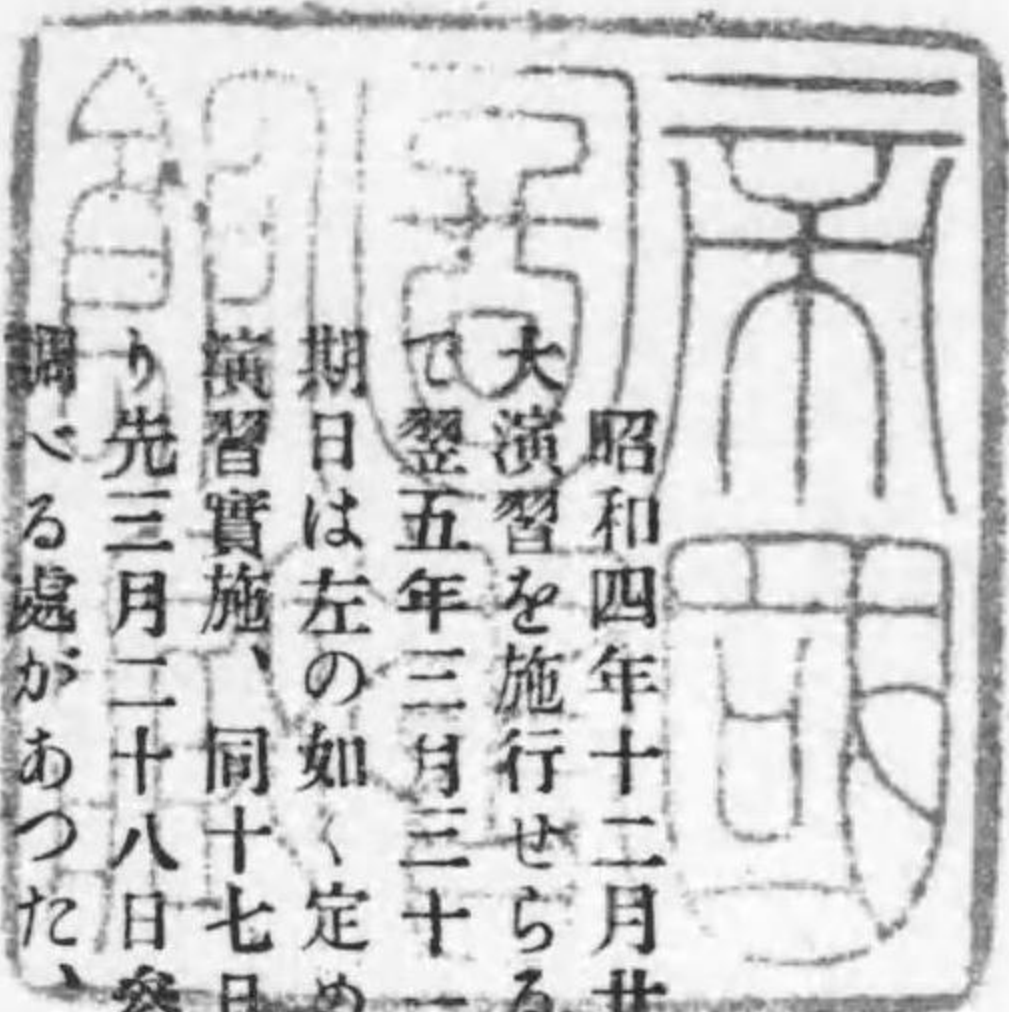 昭和四年十二月廿
大演習を施行せらる
で翌五年三月三十一
期日は左の如く定め
演習實施、同十七日
り先三月二十八日參
調べる處があつた、
帝國